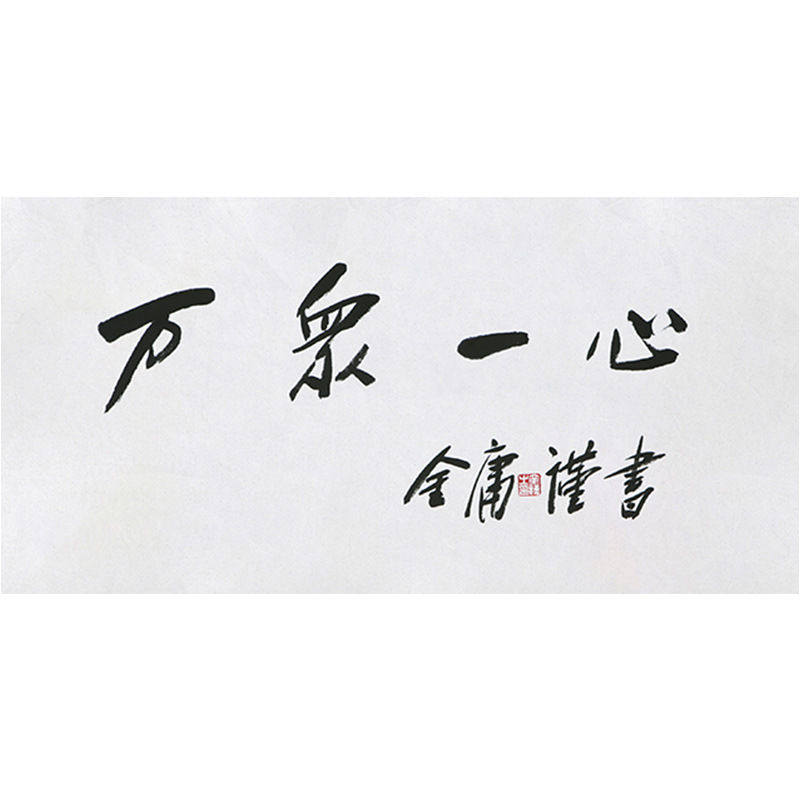 万眾一心
金庸謹書